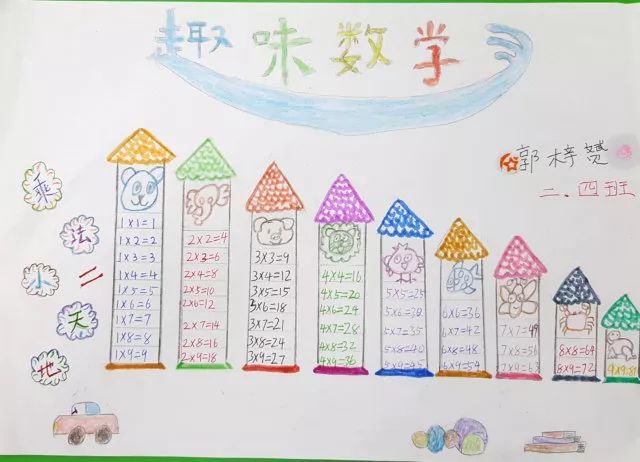 趣味数学
郭梓
二、四班
乘
法
小
二
天
地
1×1=1
1×2=2
1×3=3
1×4=4
1×5=5
1×6=6
1×7=7
1×8=8
1×9=9
2×2=4
2×3=6
2×4=8
2×5=10
2×6=12
2×7=14
2×8=16
2×9=18
3×3=9
3×4=12
3×5=15
3×6=18
3×7=21
3×8=24
3×9=27
4×4=16
4×5=20
4×6=24
4×7=28
4×8=32
4×9=36
5×5=25
5×6=30
5×7=35
5×8=40
5×9=45
6×6=36
6×7=42
6×8=48
6×9=54
7×7=49
7×8=56
7×9=63
8×8=64
8×9=72
9×9=81